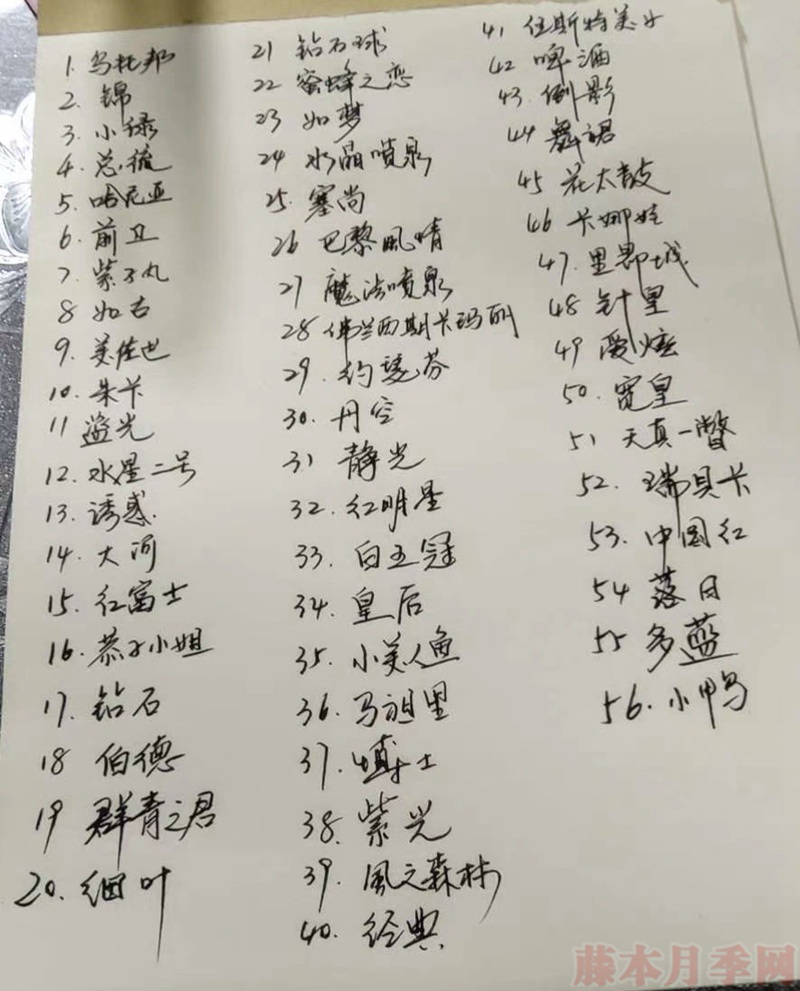 1. 乌托邦
2. 锦
3. 小绿
4. 总统
5. 哈尼亚
6. 前卫
7. 紫子丸
8 如古
9. 美佳也
10. 朱卡
11 溢光
12. 水星二号
13. 诱惑
14. 大河
15. 红富士
16. 恭子小姐
17. 钻石
18 伯德
19 群青之君
20. 细叶
21 钻石球
22 蜜蜂之恋
23 如梦
24 水晶喷泉
25. 塞尚
26 巴黎風情
27 魔法喷泉
28 佛兰西斯卡玛丽
29. 约瑟芬
30. 丹空
31 静光
32. 红明星
33. 白王冠
34. 皇后
35. 小美人鱼
36. 马祖里
37. 博士
38. 紫光
39. 風之森林
40. 经典
41 伍斯特美女
42 啤酒
43. 倒影
44 舞裙
45 花太鼓
46 卡娜娃
47. 里昂城
48 针皇
49
50. 宽皇
51 天真一瞥
52. 瑞贝卡
53. 中国红
54 落日
55 多蓝
56. 小鸭
藤本月季网